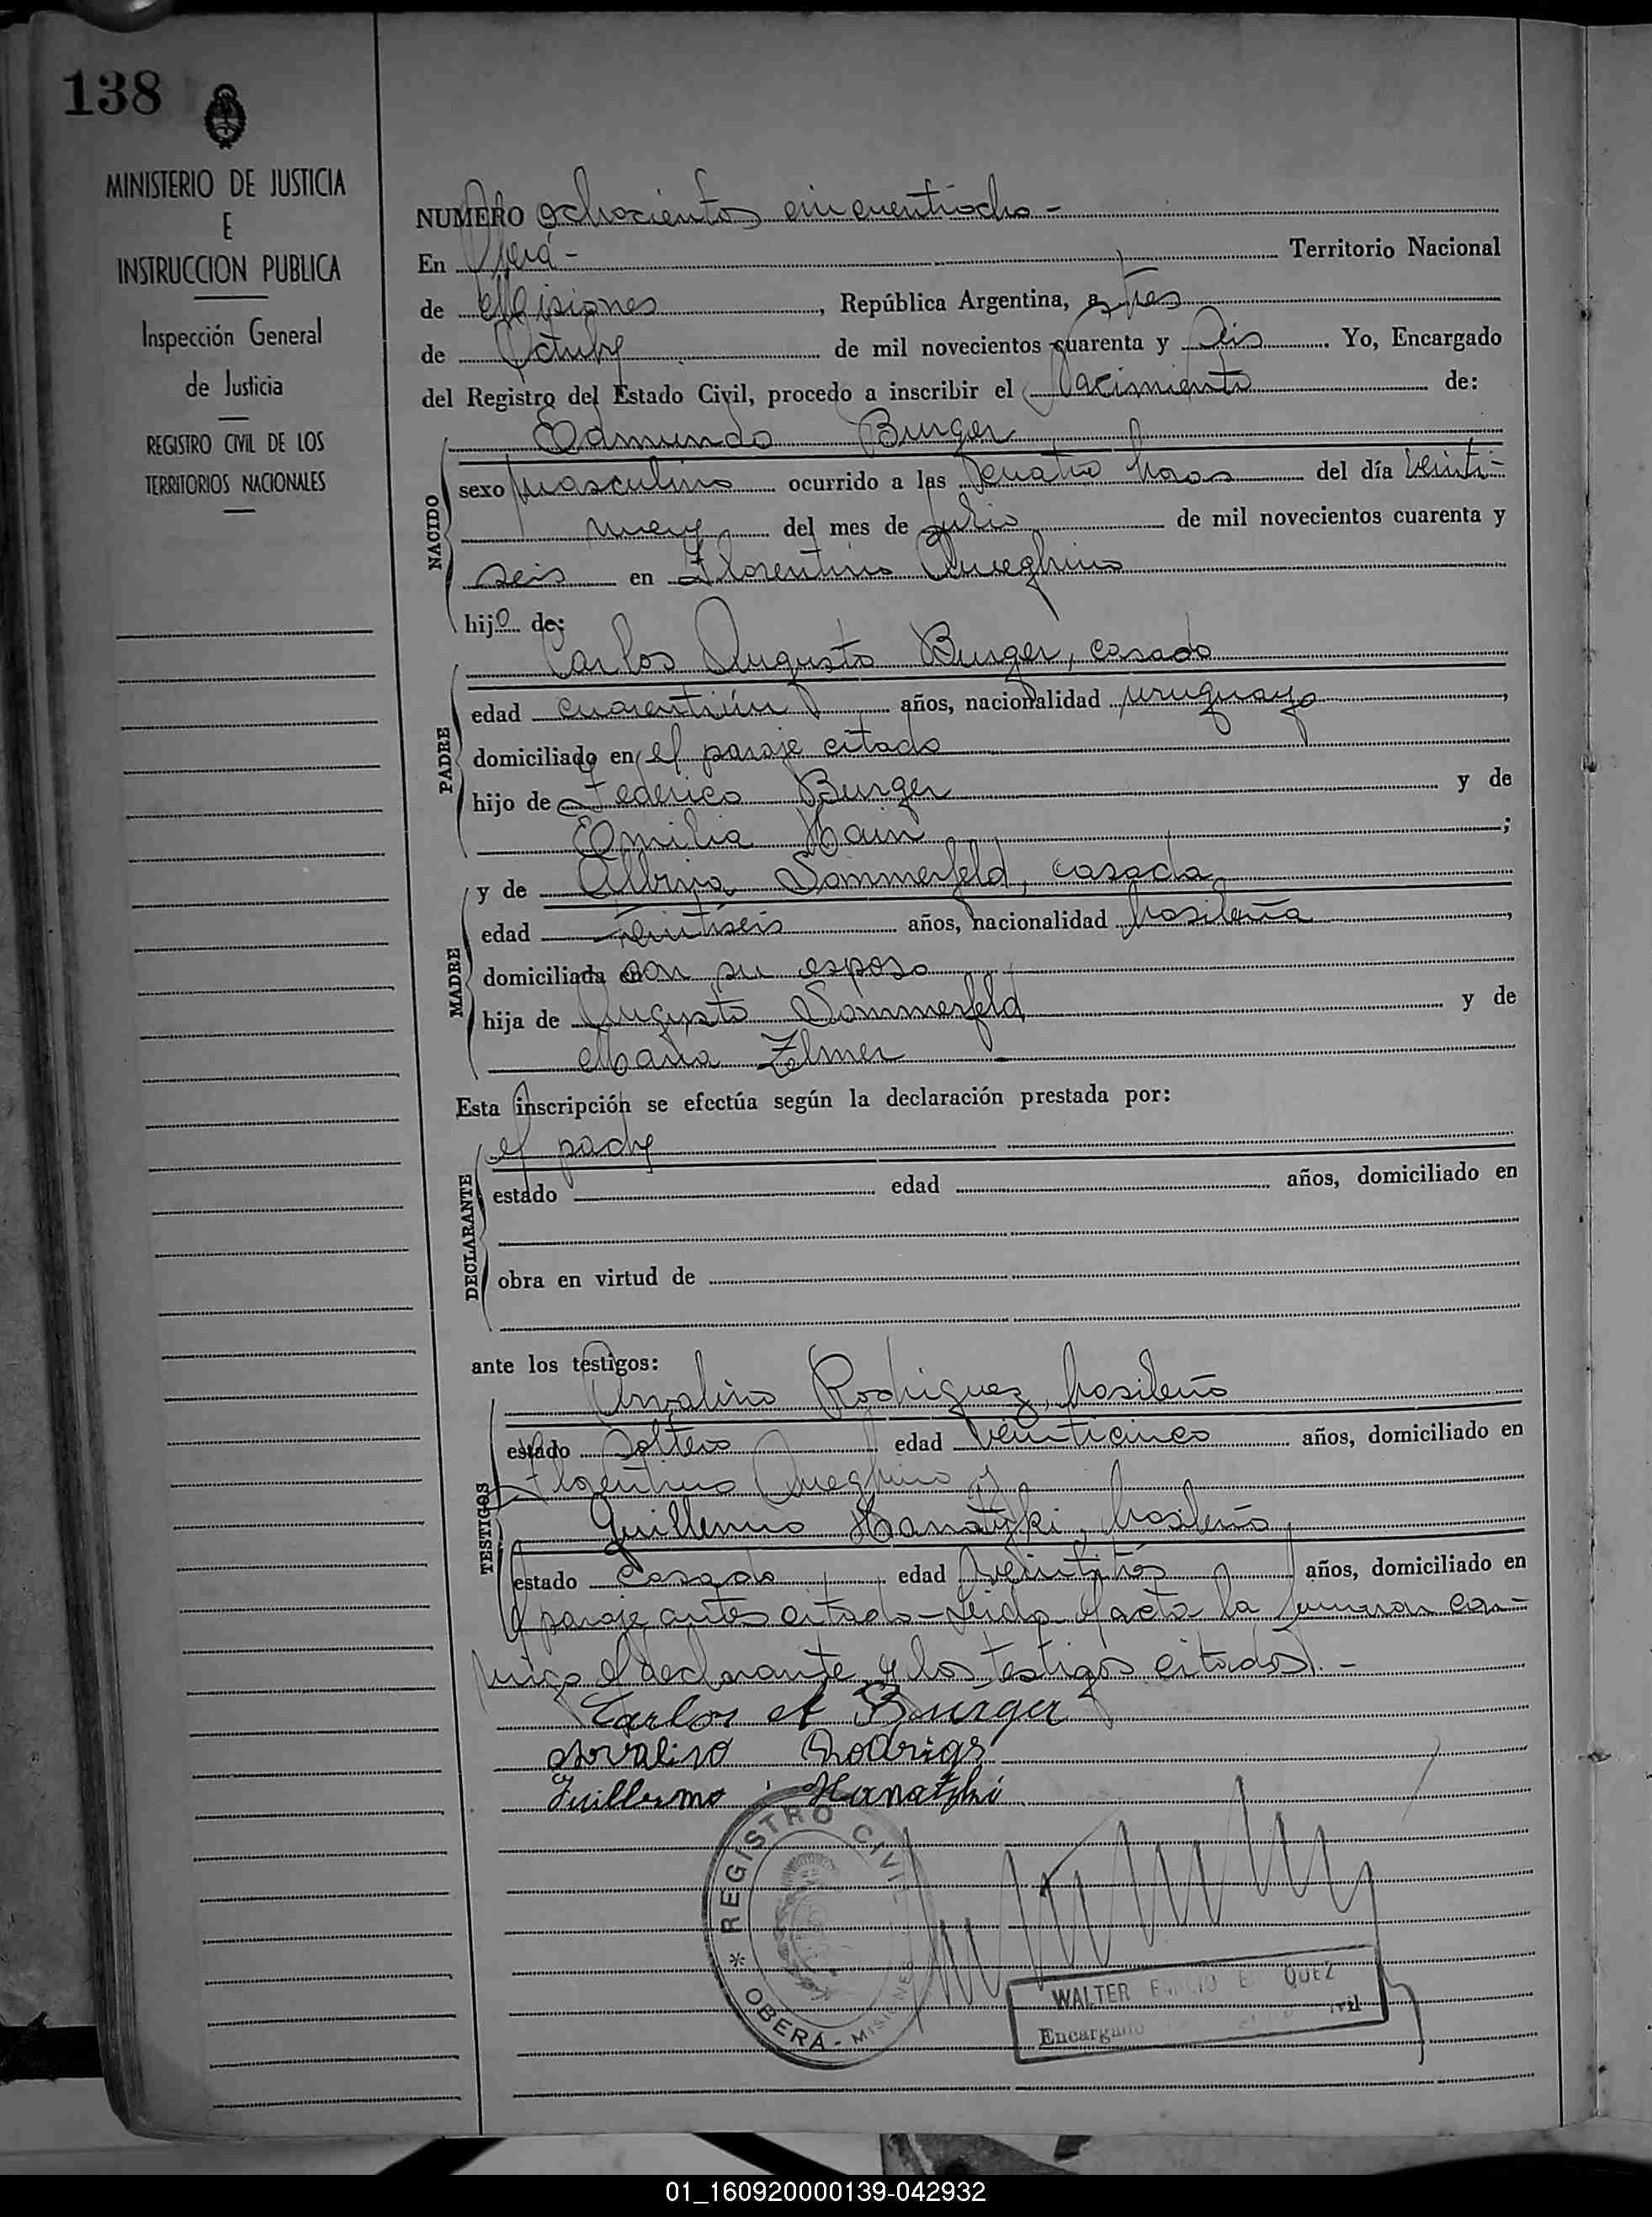 138
MINISTERIO DE JUSTICIA
E
INSTRUCCION PUBLICA
Inspección General
de Justicia
REGISTRO CIVIL DE LOS
TERRITORIOS NACIONALES
NUMERO Ochocientos cincuentiocho -
En Oberá - Territorio Nacional
de Misiones, República Argentina, a tres
de Octubre de mil novecientos cuarenta y Seis. Yo, Encargado
del Registro del Estado Civil, procedo a inscribir el Nacimiento de:
NACIDO
Edmundo Burger
sexo masculino ocurrido a las cuatro horas del día veinti-
nueve del mes de julio de mil novecientos cuarenta y
seis en Florentino Ameghino
hijo de:
PADRE
Carlos Augusto Burger, casado
edad cuarentiún años, nacionalidad uruguayo,
domiciliado en el paraje citado
hijo de Federico Burger y de
Emilia Hain;
MADRE
y de Albina Sommerfeld, casada
edad veintiseis años, nacionalidad brasileña,
domiciliada en con su esposo
hija de Augusto Sommerfeld y de
Maria Zelmer
Esta inscripción se efectúa según la declaración prestada por:
DECLARANTE
el padre
estado edad años, domiciliado en
obra en virtud de
ante los testigos:
TESTIGOS
Orvalino Rodriguez, brasileño
estado soltero edad veinticinco años, domiciliado en
Florentino Ameghino y
Guillermo Hanatzki, brasileño,
estado casado edad veintitrés años, domiciliado en
el paraje antes citado - Leida el acta la firman con-
migo el declarante y los testigos citados. -
Carlos A Burger
Orvalino Rodrigs
Guillermo Hanatzki
REGISTRO CIVIL
* OBERÁ - MISIONES
WALTER
Encargado
01_160920000139-042932